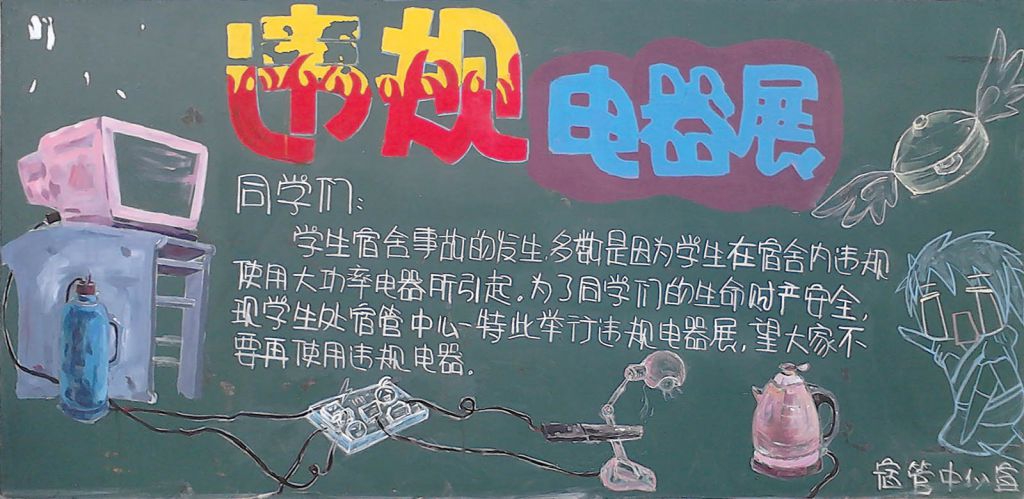 违规电器展
同学们:
学生宿舍事故的发生,多数是因为学生在宿舍内违规
使用大功率电器所引起。为了同学们的生命财产安全,
现学生处宿管中心特此举行违规电器展,望大家不
要再使用违规电器.
宿管中心宣